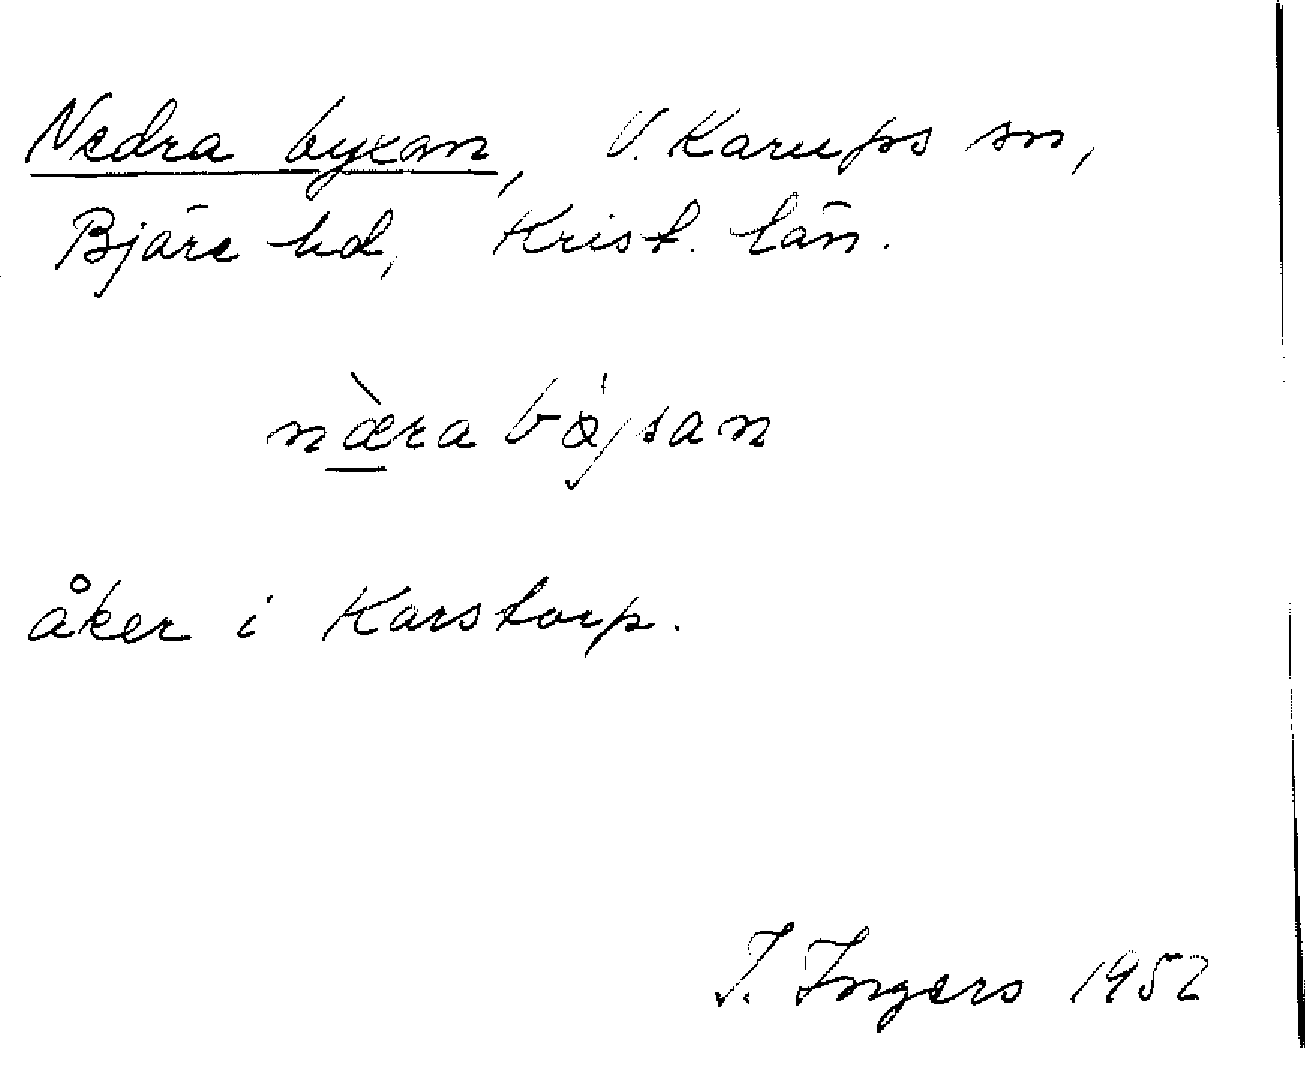 Nedra byxan, V. Karups sn,
Bjäre hd, Krist. län.
næ̀ra bø̀jsan
åker i Karstorp.
I. Ingers 1952